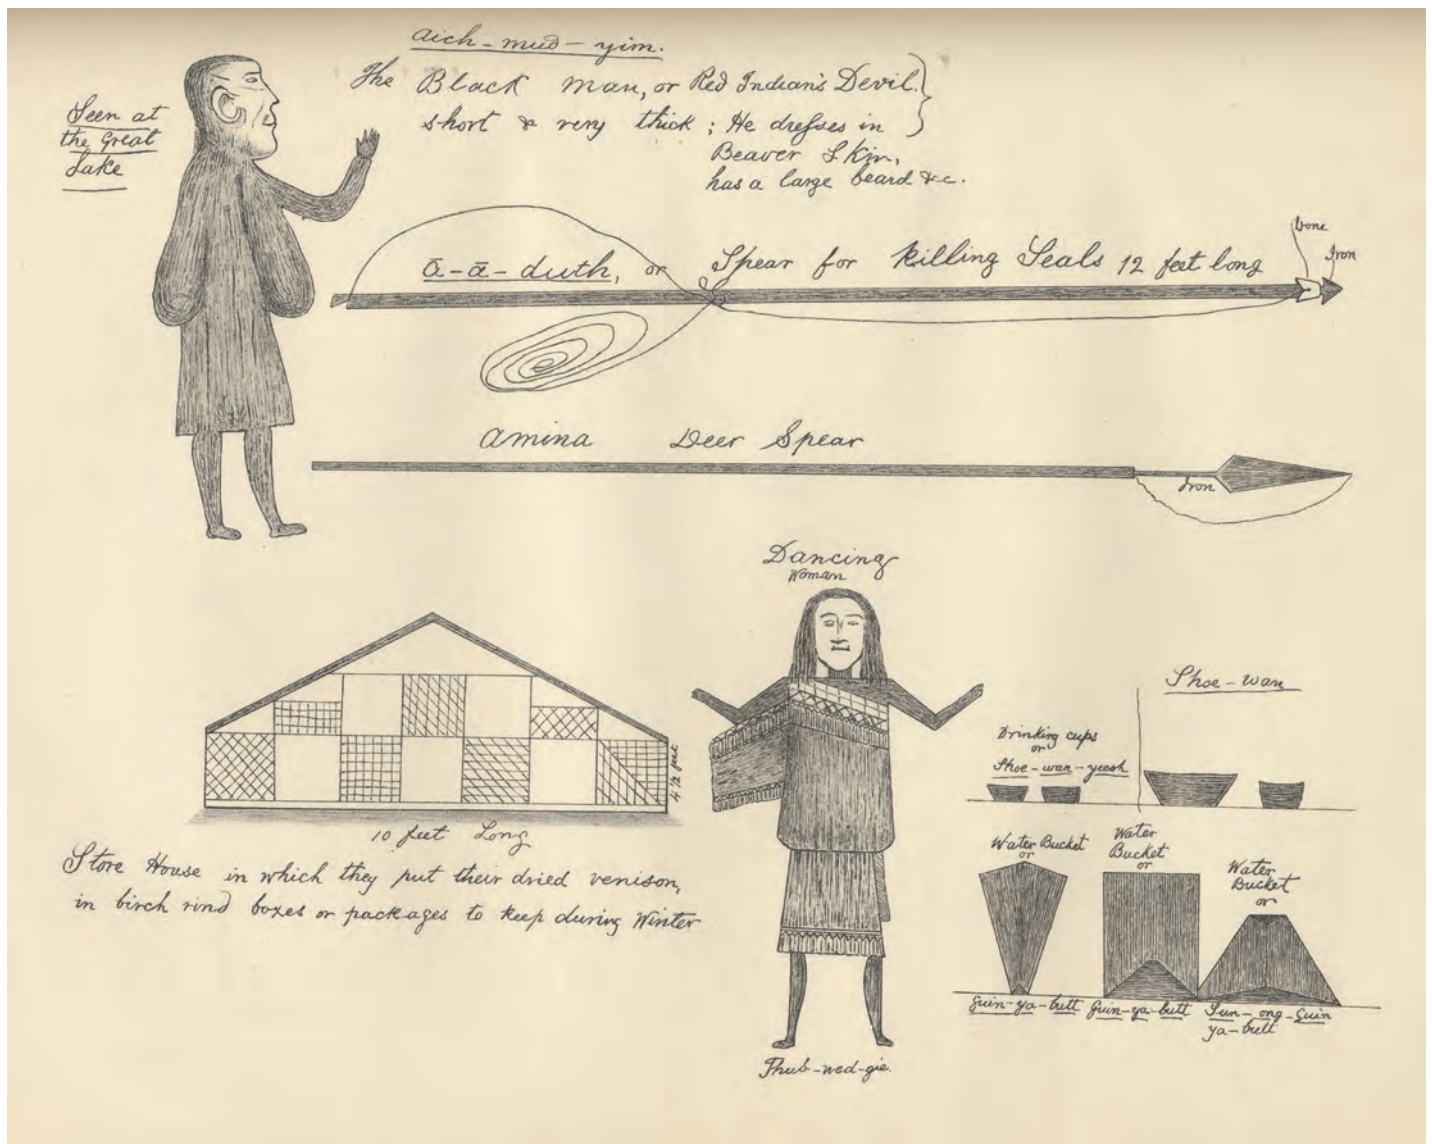 aich-mud-yim.
The Black man, or Red Indian's Devil.
short & very thick; He dresses in
Beaver Skin,
has a large beard &c.
Seen at
the Great
Lake
ā-ā-duth, or Spear for Killing Seals 12 feet long
bone
Iron
amina Deer Spear
Iron
Dancing
Woman
Thub-wed-gie.
4 1/2 feet
10 feet Long
Store House in which they put their dried venison,
in birch rind boxes or packages to keep during Winter
Shoe-wan
Drinking cups
or
Shoe-wan-yeesh
Water Bucket
or
Guin-ya-butt
Water
Bucket
or
Guin-ya-butt
Water
Bucket
or
Sun-ong-guin
ya-butt